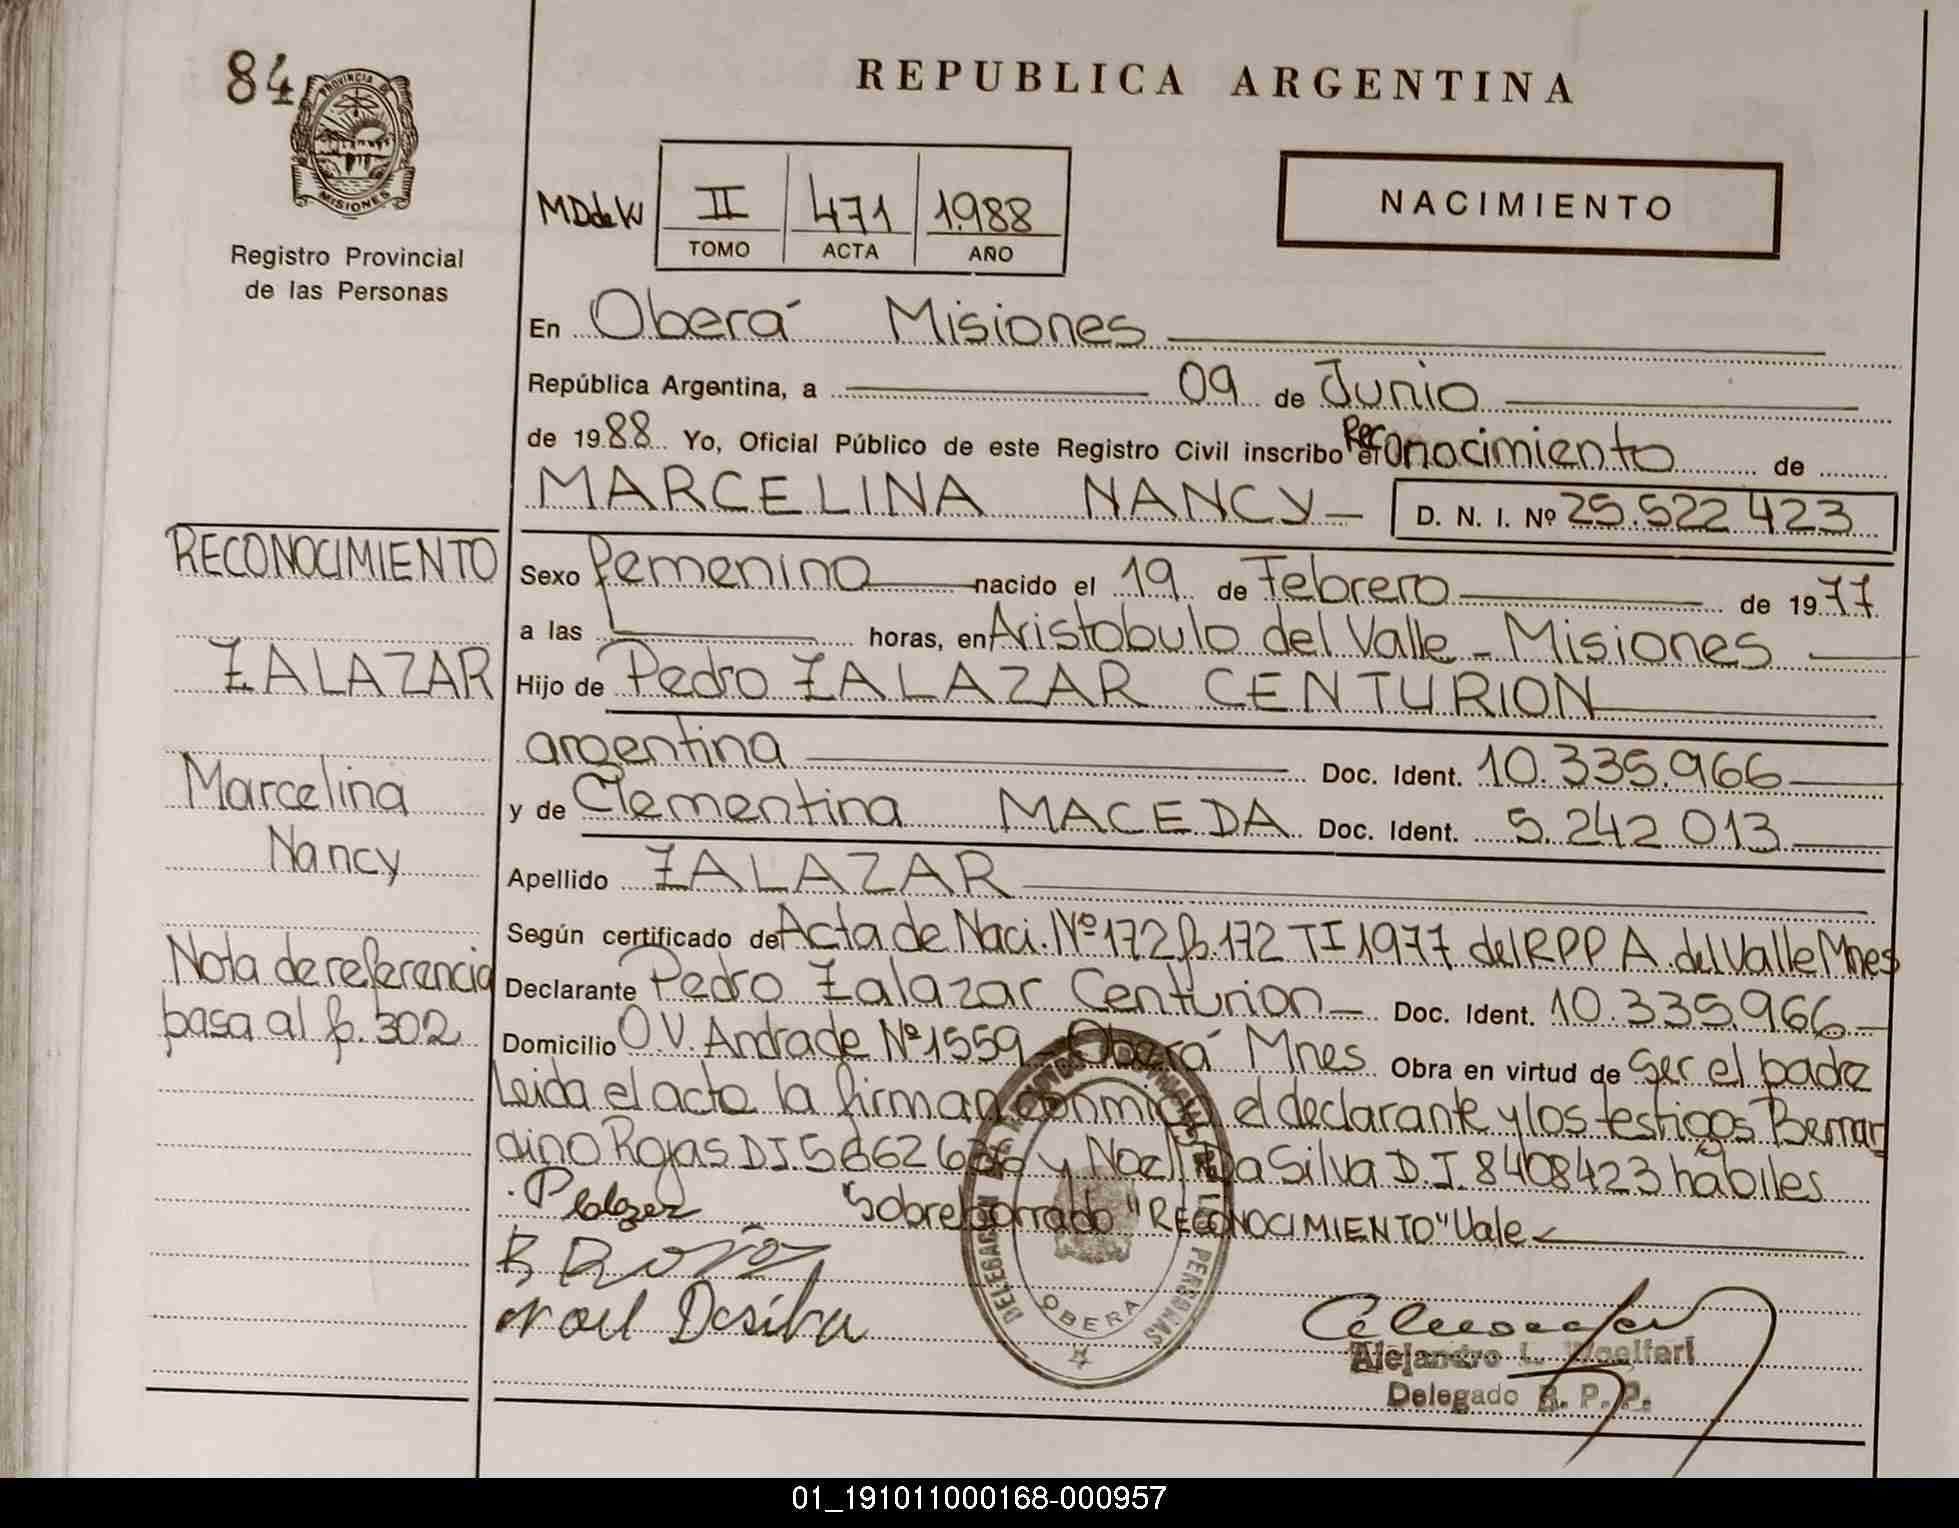 84
PROVINCIA DE
MISIONES
Registro Provincial
de las Personas
REPUBLICA ARGENTINA
MDdeW
II 471 1.988
TOMO ACTA AÑO
NACIMIENTO
En Oberá Misiones
República Argentina, a 09 de Junio
de 1988 Yo, Oficial Público de este Registro Civil inscribo el Reconocimiento de
MARCELINA NANCY D. N. I. Nº 25.522 423
Sexo femenino nacido el 19 de Febrero de 1977
a las horas, en Aristobulo del Valle - Misiones
Hijo de Pedro ZALAZAR CENTURION
argentina Doc. Ident. 10.335.966
y de Clementina MACEDA Doc. Ident. 5.242 013
Apellido ZALAZAR
Según certificado de Acta de Naci. Nº 172 fº. 172 TI 1977 del RPP A. del Valle Mnes
Declarante Pedro Zalazar Centurion Doc. Ident. 10.335.966
Domicilio O V. Andrade Nº 1559 - Oberá Mnes Obra en virtud de ser el padre
Leida el acta la firman conmigo el declarante y los testigos Bernar
dino Rojas DI. y Noel Da Silva D.I. 8408423 hábiles
Sobreborrado "RECONOCIMIENTO" Vale
Noel Dasilva
DELEGACION PERSONAS
OBERA
Alejandro L.
Delegado R. P. P.
RECONOCIMIENTO
ZALAZAR
Marcelina
Nancy
Nota de referencia
pasa al fº. 302
01_191011000168-000957